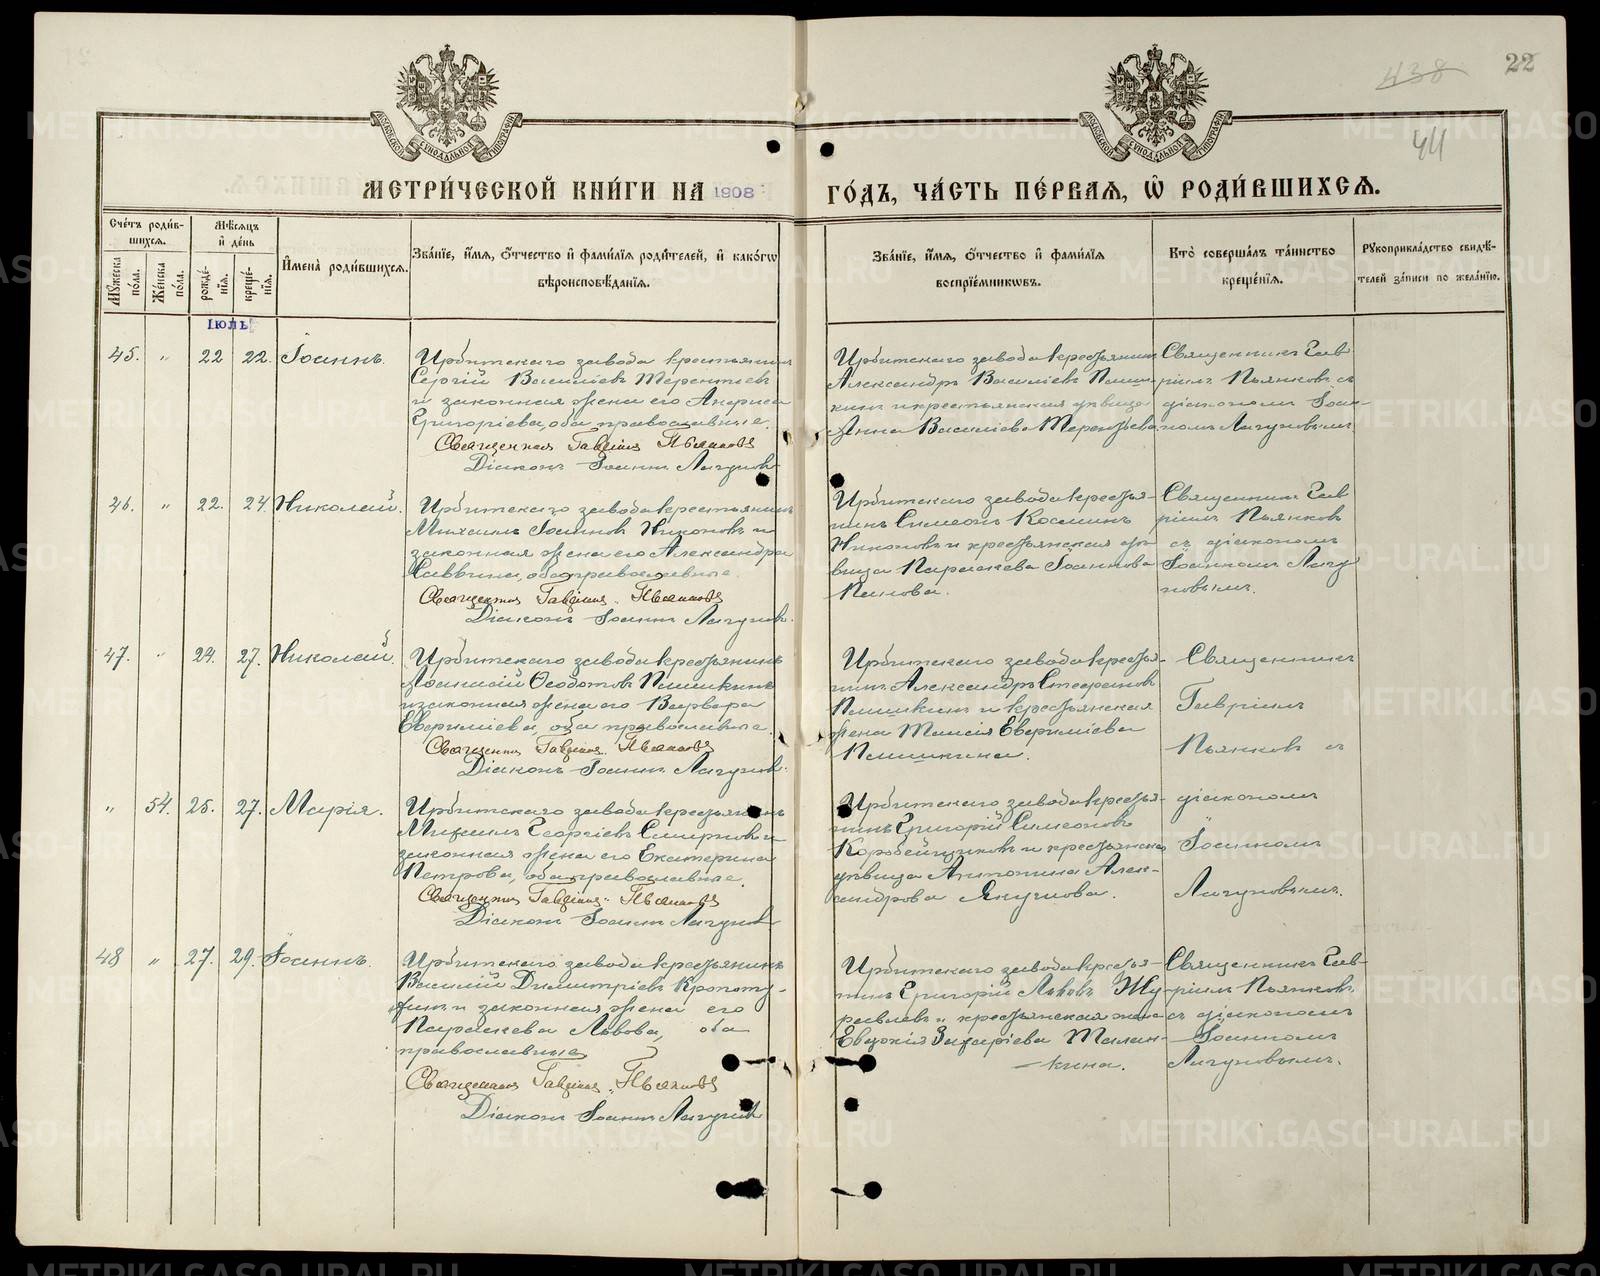 438
22
44
МЕТРИ́ЧЕСКОЙ КНИ́ГИ НА 1908
ГО́ДЪ, ЧА́СТЬ ПЕ́РВАЯ, Ѡ РОДИ́ВШИХСЯ.
Счетъ роди́в-
шихся.
Мѣсяцъ
и день
Мужеска пола.
Женска пола.
рожде-
нія.
креще-
нія.
Имена роди́вшихся.
Званіе, имя, отчество и фамилія родителей, и какогѡ
вѣроисповѣданія.
Званіе, имя, отчество и фамилія
воспріемникѡвъ.
Кто совершалъ таинство
крещенія.
Рукоприкладство свидѣ-
телей записи по желанію.
Іюль
45. " 22 22. Іоаннъ.
Ирбитскаго завода крестьянинъ
Сергій Василіевъ Терентьевъ
и законная жена его
Григоріева, оба православные.
Священникъ Гавріилъ Пьянковъ
Діаконъ Іоаннъ Лагуновъ
Ирбитскаго завода крестьянин
Александръ Василіевъ Паш-
кинъ и крестьянская дѣвица
Анна Василіева Терентьева
Священникъ Гав-
ріилъ Пьянковъ съ
діакономъ Іоан-
номъ Лагуновымъ
46. " 22. 24. Николай.
Ирбитскаго завода крестьянинъ
Михаилъ Іоанновъ Никоновъ и
законная жена его Александра
Саввина, оба православные.
Священникъ Гавріилъ Пьянковъ
Діаконъ Іоаннъ Лагуновъ.
Ирбитскаго завода крестья-
нинъ Симеонъ Косминъ
Никоновъ и крестьянская дѣ-
вица Параскева Іоаннова
Панова.
Священникъ Гав
ріилъ Пьянковъ
съ діакономъ
Іоанномъ Лагу
новымъ.
47. " 24. 27. Николай.
Ирбитскаго завода крестьянинъ
Аѳанасій Ѳеодотовъ Пашкинъ
и законная жена его Варвара
Евфиміева, оба православные.
Священникъ Гавріилъ Пьянковъ
Діаконъ Іоаннъ Лагуновъ.
Ирбитскаго завода крестья-
нинъ Александръ Стефановъ
Пашкинъ и крестьянская
жена Таисія Евфиміева
Пашкина.
Священникъ
Гавріилъ
Пьянковъ съ
" 54. 25. 27. Марія.
Ирбитскаго завода крестьянинъ
Михаилъ Георгіевъ Смирновъ и
законная жена его Екатерина
Петрова, оба православные.
Священникъ Гавріилъ Пьянковъ
Діаконъ Іоаннъ Лагуновъ
Ирбитскаго завода крестья-
нинъ Григорій Симеоновъ
Коробейщиковъ и крестьянская
дѣвица Антонина Алек-
сандрова Якушова.
діакономъ
Іоанномъ
Лагуновымъ.
48 " 27. 29. Іоаннъ.
Ирбитскаго завода крестьянинъ
Василій Димитріевъ Кропоту-
хинъ и законная жена его
Параскева Львова, оба
православные
Священникъ Гавріилъ Пьянковъ
Діаконъ Іоаннъ Лагуновъ
Ирбитскаго завода крестья-
нинъ Григорій Львовъ Жу-
равлевъ и крестьянская жена
Евдокія Захаріева Малан-
кина.
Священникъ Гав-
ріилъ Пьянковъ
съ діакономъ
Іоанномъ
Лагуновымъ.